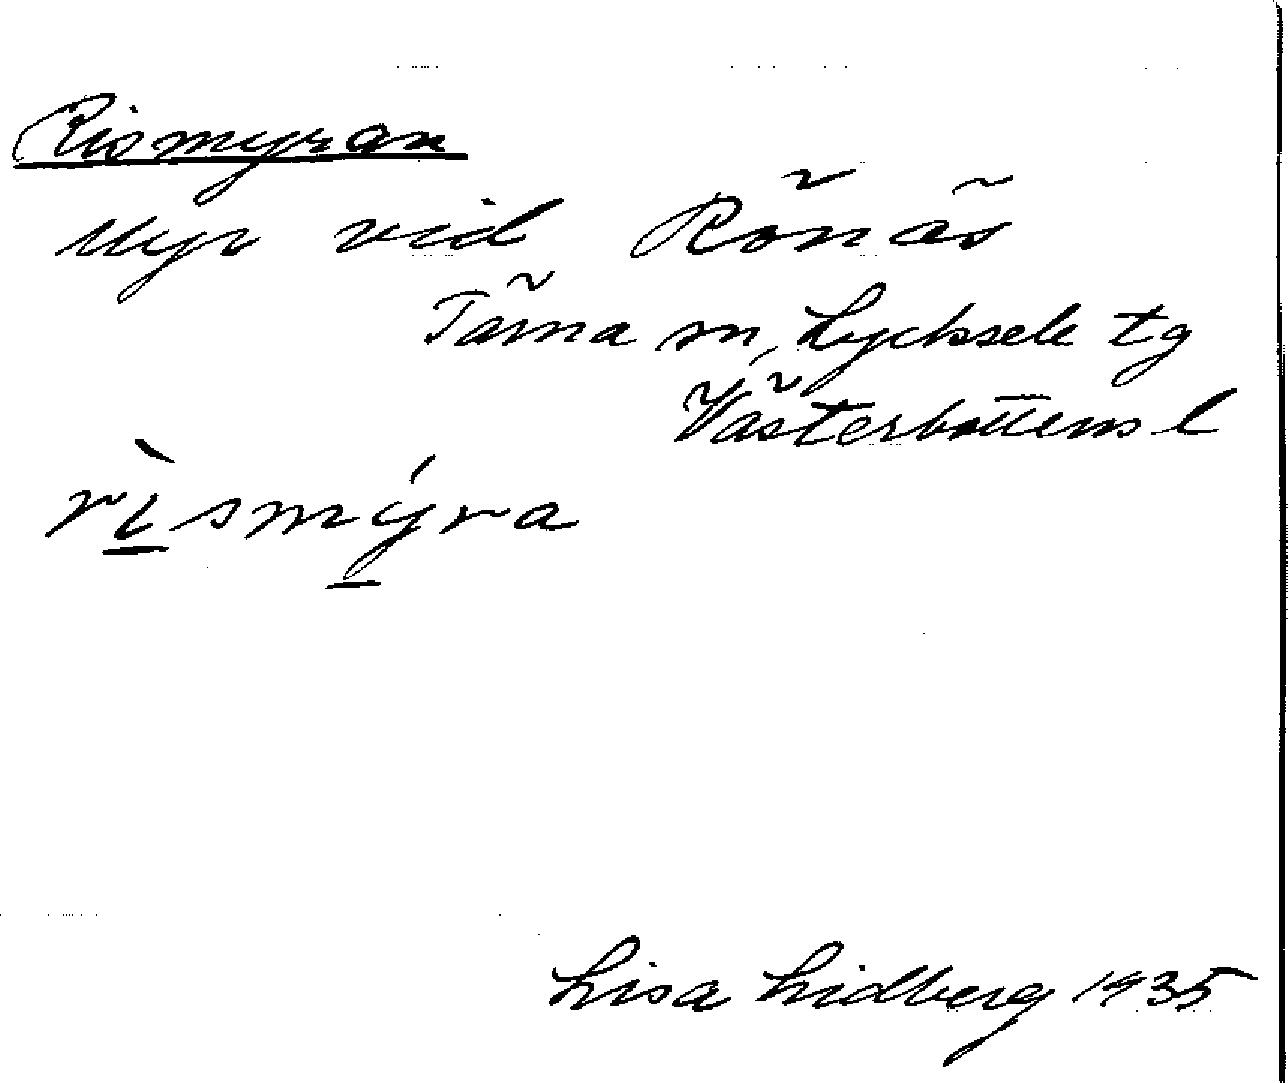 Rismyran
Myr vid Rönäs
Tärna sn, Lycksele tg
Västerbottens l
rı̀smýra
Lisa Lidberg 1935